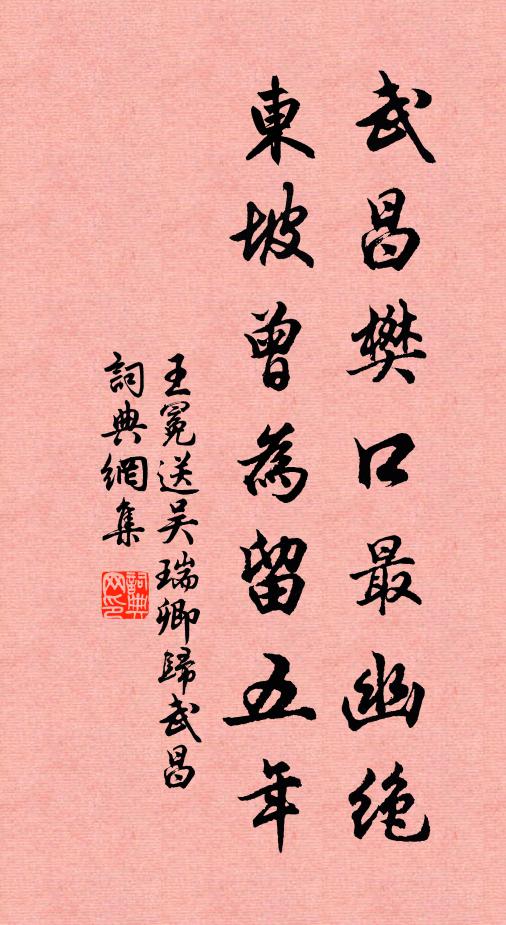 武昌樊口最幽绝
東坡曾為留五年
王冕送吴瑞卿歸武昌
詞典網集
詞典网印